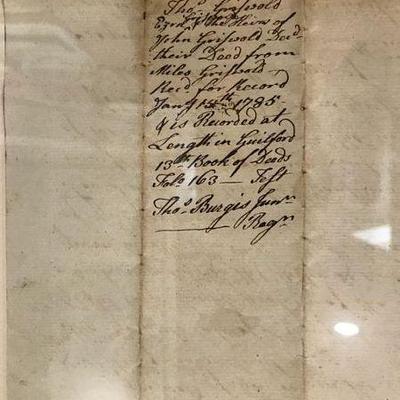 Thos. Griswold
Ezra & The Heirs of
John Griswold Decd
their Deed from
Miles Griswold
Recd for Record
Jany 15th 1785
& is Recorded at
Length in Guilford
13th Book of Deeds
Folo 163 — Test
Thos. Burgis Junr
Regr